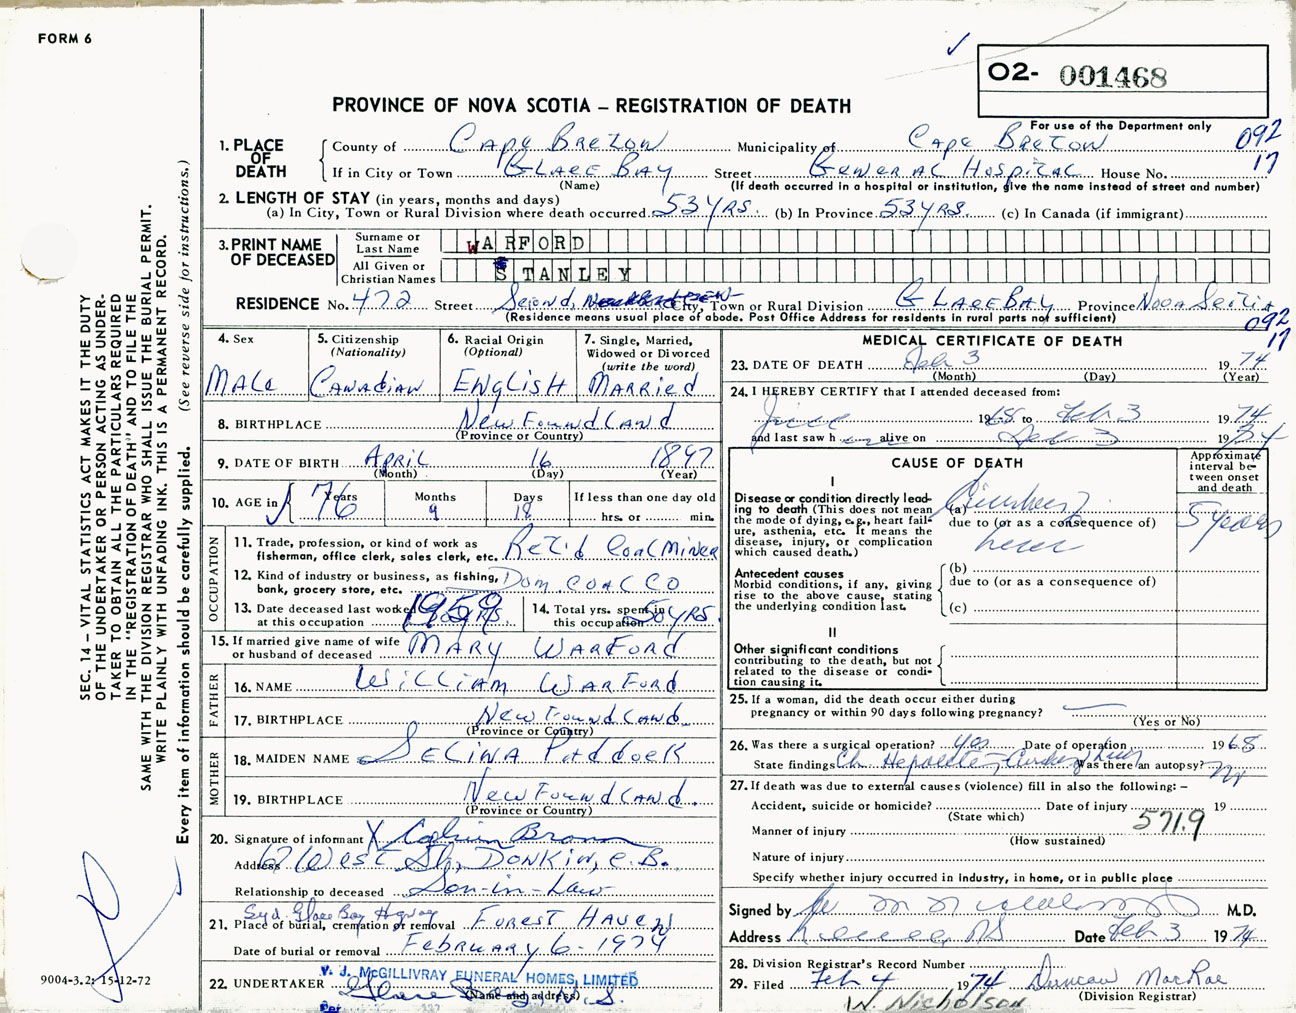 FORM 6
02- 001468
PROVINCE OF NOVA SCOTIA – REGISTRATION OF DEATH
For use of the Department only
092
17
1. PLACE OF DEATH
County of Cape Breton Municipality of Cape Breton
If in City or Town Glace Bay Street General Hospital House No.
(Name) (If death occurred in a hospital or institution, give the name instead of street and number)
2. LENGTH OF STAY (in years, months and days)
(a) In City, Town or Rural Division where death occurred 53 YRS. (b) In Province 53 YRS. (c) In Canada (if immigrant)
3. PRINT NAME OF DECEASED
Surname or Last Name WARFORD
All Given or Christian Names STANLEY
RESIDENCE No. 472 Street Second City, Town or Rural Division Glace Bay Province Nova Scotia
(Residence means usual place of abode. Post Office Address for residents in rural parts not sufficient)
092
17
4. Sex Male
5. Citizenship (Nationality) Canadian
6. Racial Origin (Optional) English
7. Single, Married, Widowed or Divorced (write the word) Married
8. BIRTHPLACE Newfoundland
(Province or Country)
9. DATE OF BIRTH April 16 1897
(Month) (Day) (Year)
10. AGE in Years 76 Months 9 Days 18 If less than one day old hrs. or min.
OCCUPATION
11. Trade, profession, or kind of work as fisherman, office clerk, sales clerk, etc. Ret'd Coal Miner
12. Kind of industry or business, as fishing, bank, grocery store, etc. Dom. Coal Co
13. Date deceased last worked at this occupation 1959
14. Total yrs. spent in this occupation 50 YRS.
15. If married give name of wife or husband of deceased Mary Warford
FATHER
16. NAME William Warford
17. BIRTHPLACE Newfoundland.
(Province or Country)
MOTHER
18. MAIDEN NAME Selina Paddock
19. BIRTHPLACE Newfoundland.
(Province or Country)
20. Signature of informant X Calvin Brown
Address 67 West St, Donkin, C.B.
Relationship to deceased Son-in-Law
Syd. Glace Bay Hgway
21. Place of burial, cremation or removal Forest Haven
Date of burial or removal February 6 - 1974
V. J. McGILLIVRAY FUNERAL HOMES, LIMITED
22. UNDERTAKER Glace Bay, N.S.
(Name and address)
Per
MEDICAL CERTIFICATE OF DEATH
23. DATE OF DEATH Feb 3 1974
(Month) (Day) (Year)
24. I HEREBY CERTIFY that I attended deceased from:
1968 to Feb 3 1974
and last saw h alive on Feb 3 1974
CAUSE OF DEATH
Approximate interval between onset and death
I
Disease or condition directly leading to death (This does not mean the mode of dying, e.g., heart failure, asthenia, etc. It means the disease, injury, or complication which caused death.)
(a) Cirrhosis
due to (or as a consequence of)
liver
5 years
Antecedent causes
Morbid conditions, if any, giving rise to the above cause, stating the underlying condition last.
(b)
due to (or as a consequence of)
(c)
II
Other significant conditions
contributing to the death, but not related to the disease or condition causing it.
25. If a woman, did the death occur either during pregnancy or within 90 days following pregnancy?
(Yes or No)
26. Was there a surgical operation? yes Date of operation 1968
State findings Ch Hepatitis, Cirrhosis Liver Was there an autopsy? No
27. If death was due to external causes (violence) fill in also the following: –
Accident, suicide or homicide? Date of injury 19
(State which)
571.9
Manner of injury
(How sustained)
Nature of injury
Specify whether injury occurred in industry, in home, or in public place
Signed by M.D.
Address Date Feb 3 1974
28. Division Registrar's Record Number
29. Filed Feb 4 1974 Duncan MacRae
(Division Registrar)
W. Nicholson
SEC. 14 – VITAL STATISTICS ACT MAKES IT THE DUTY
OF THE UNDERTAKER OR PERSON ACTING AS UNDER-
TAKER TO OBTAIN ALL THE PARTICULARS REQUIRED
IN THE "REGISTRATION OF DEATH" AND TO FILE THE
SAME WITH THE DIVISION REGISTRAR WHO SHALL ISSUE THE BURIAL PERMIT.
WRITE PLAINLY WITH UNFADING INK. THIS IS A PERMANENT RECORD.
Every item of information should be carefully supplied. (See reverse side for instructions.)
9004-3.2: 15-12-72